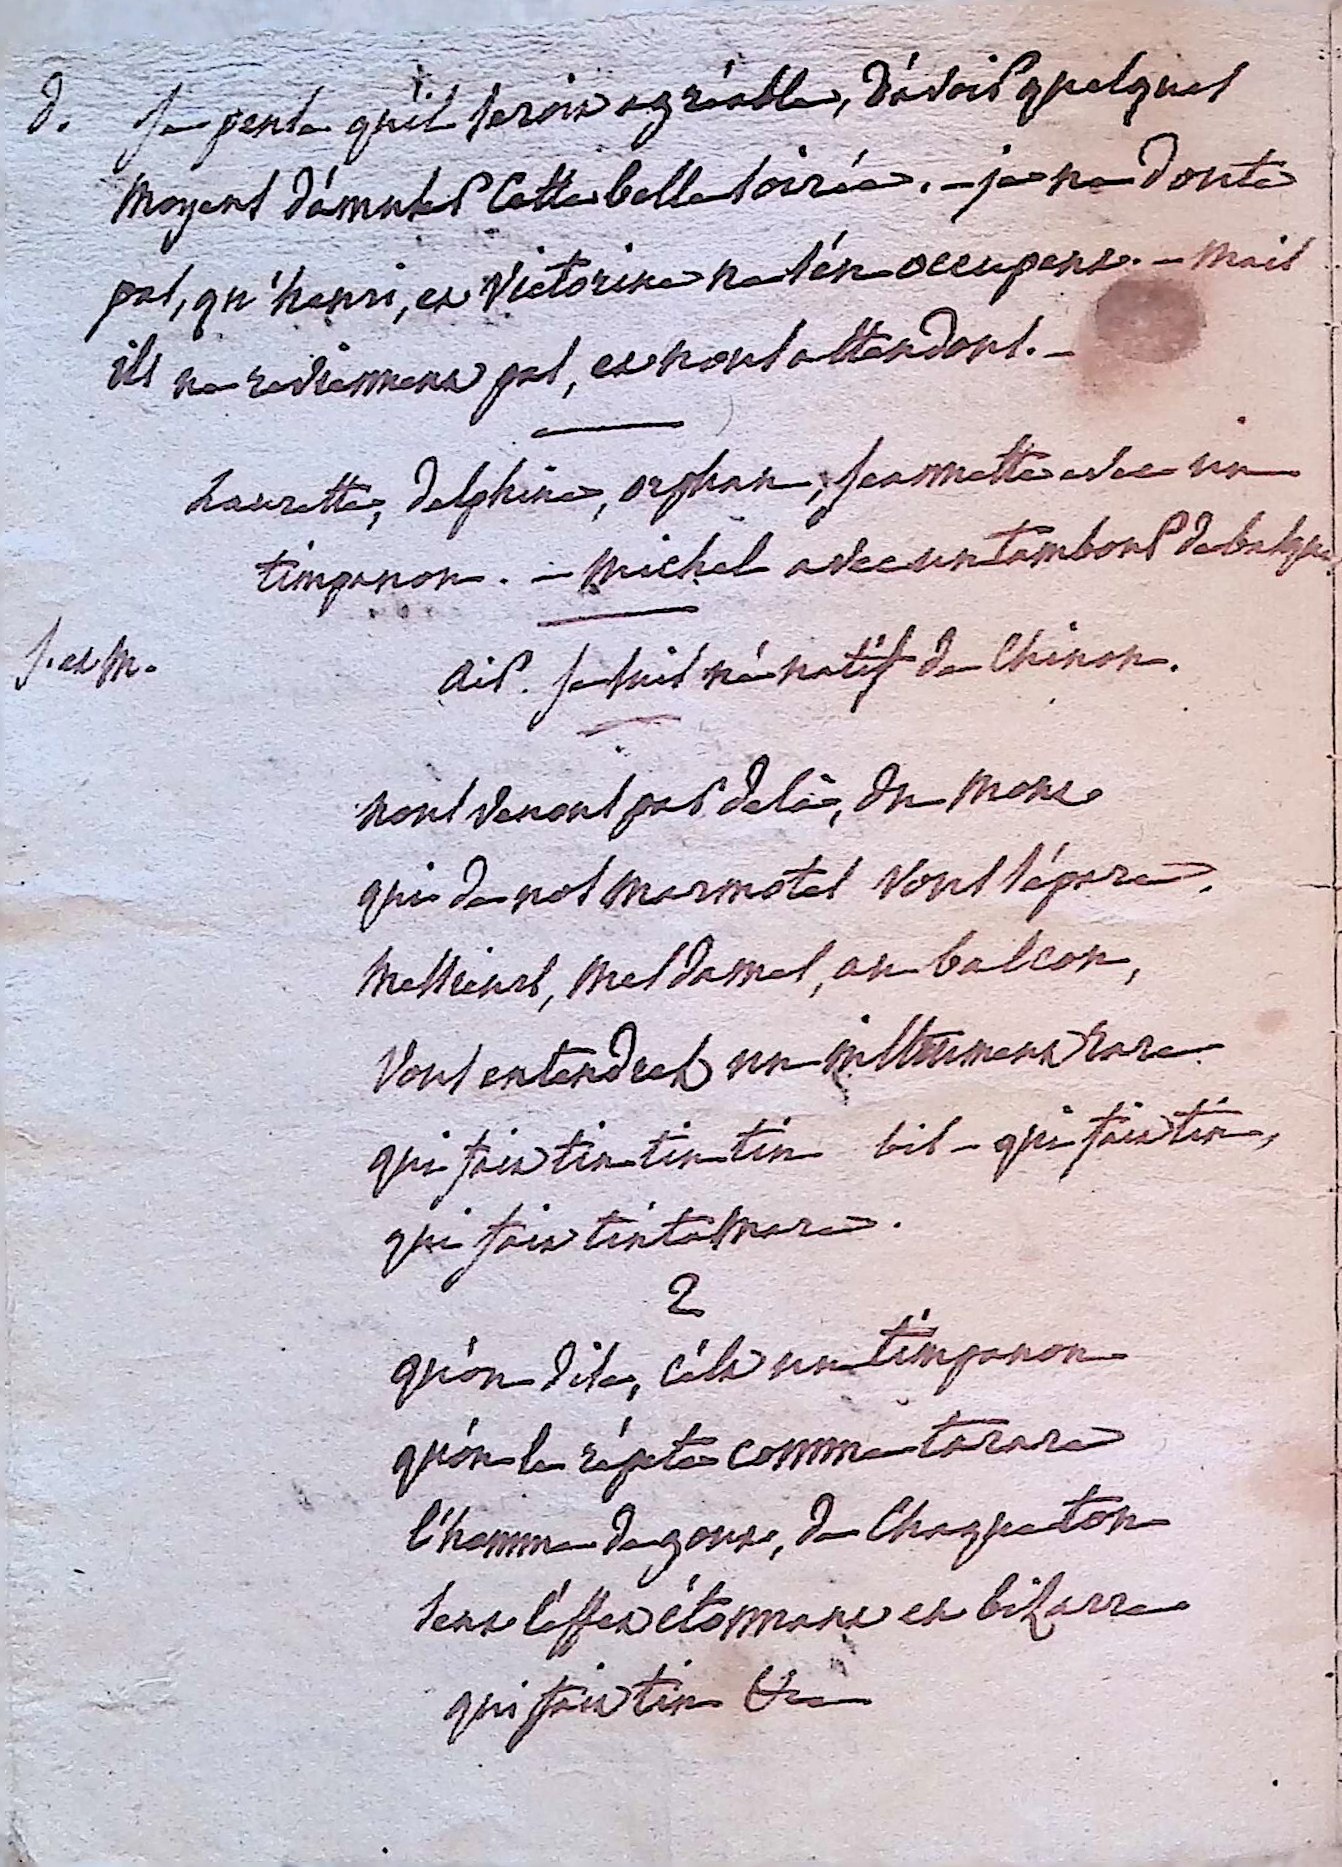 d. je pense qu'il seroit agréable, d'avoir quelques
moyens d'amuser cette belle soirée. – je ne doute
pas, qu'henri, et victorine ne s'én occupent. – mais
ils ne reviennent pas, et nous attendons. –
Laurette, delphine, orphan, jeannette avec un
timpanon. – michel avec un tambour de basque
j. et m. air. je suis né natif de Chinon.
nous venons par delà, du mont
qui de nos marmotes vous sépare.
messieurs, mesdames, au balcon,
vous entendrez un instrument rare
qui fait tin tin tin bis – qui fait tin,
qui fait tintamare.
2
qu'on dise, c'ést un timpanon
qu'ón le répete comme tarare
l'homme de gout, de chaque ton
sent l'éffet étonnant et bizarre
qui fait tin &c